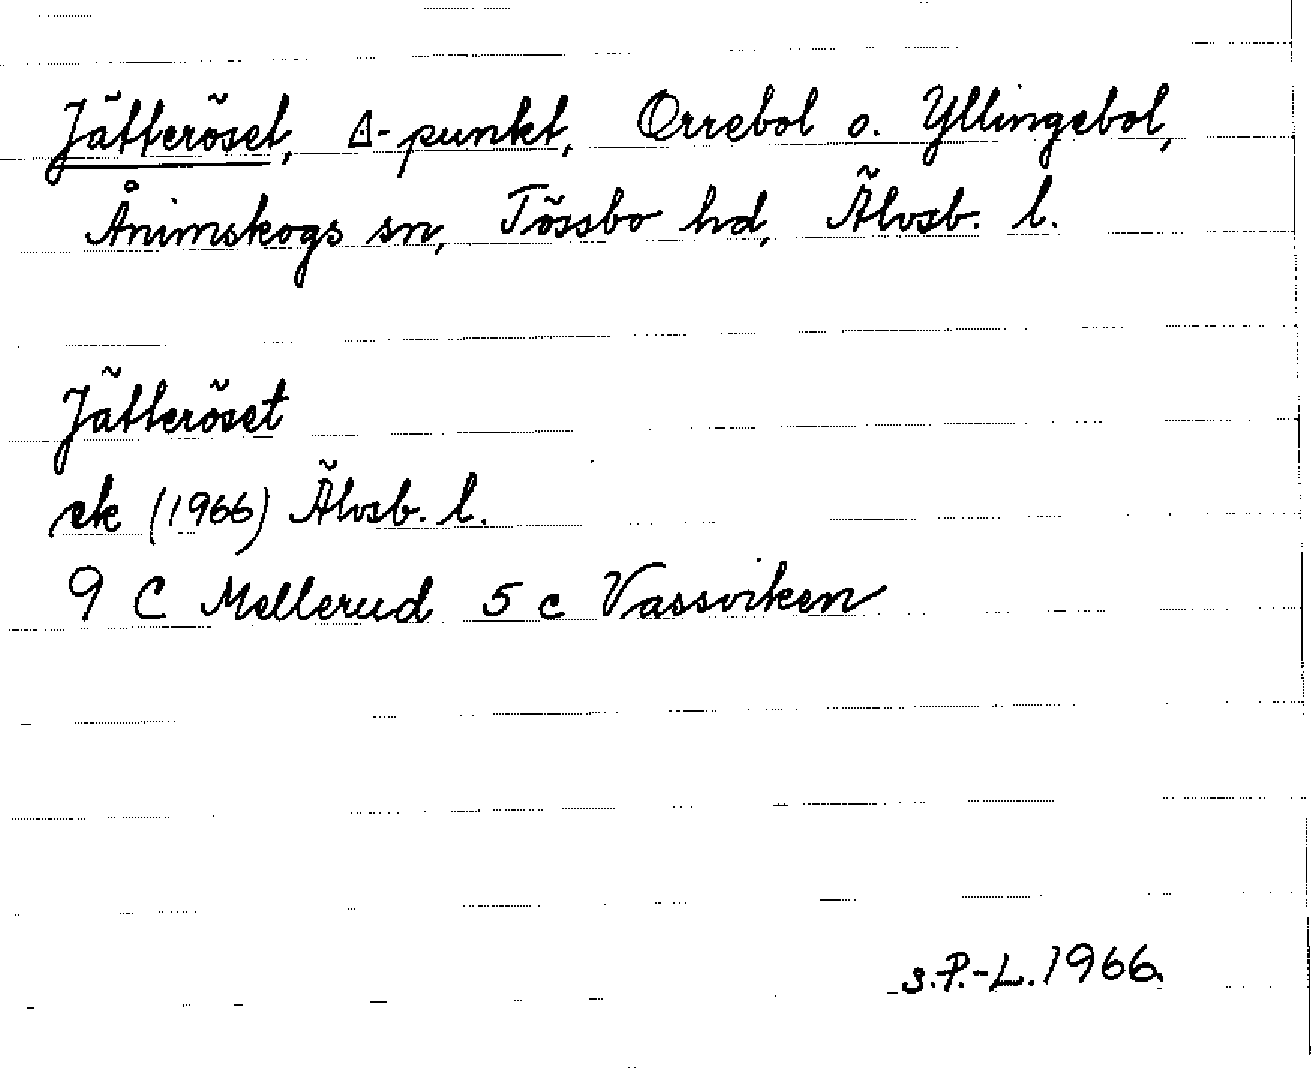 Jätteröset, Δ-punkt, Orrebol o. Yllingebol,
Ånimskogs sn, Tössbo hd, Älvsb. l.
Jätteröset
ek (1966) Älvsb. l.
9 C Mellerud 5 c Vassviken
S.P.-L. 1966.